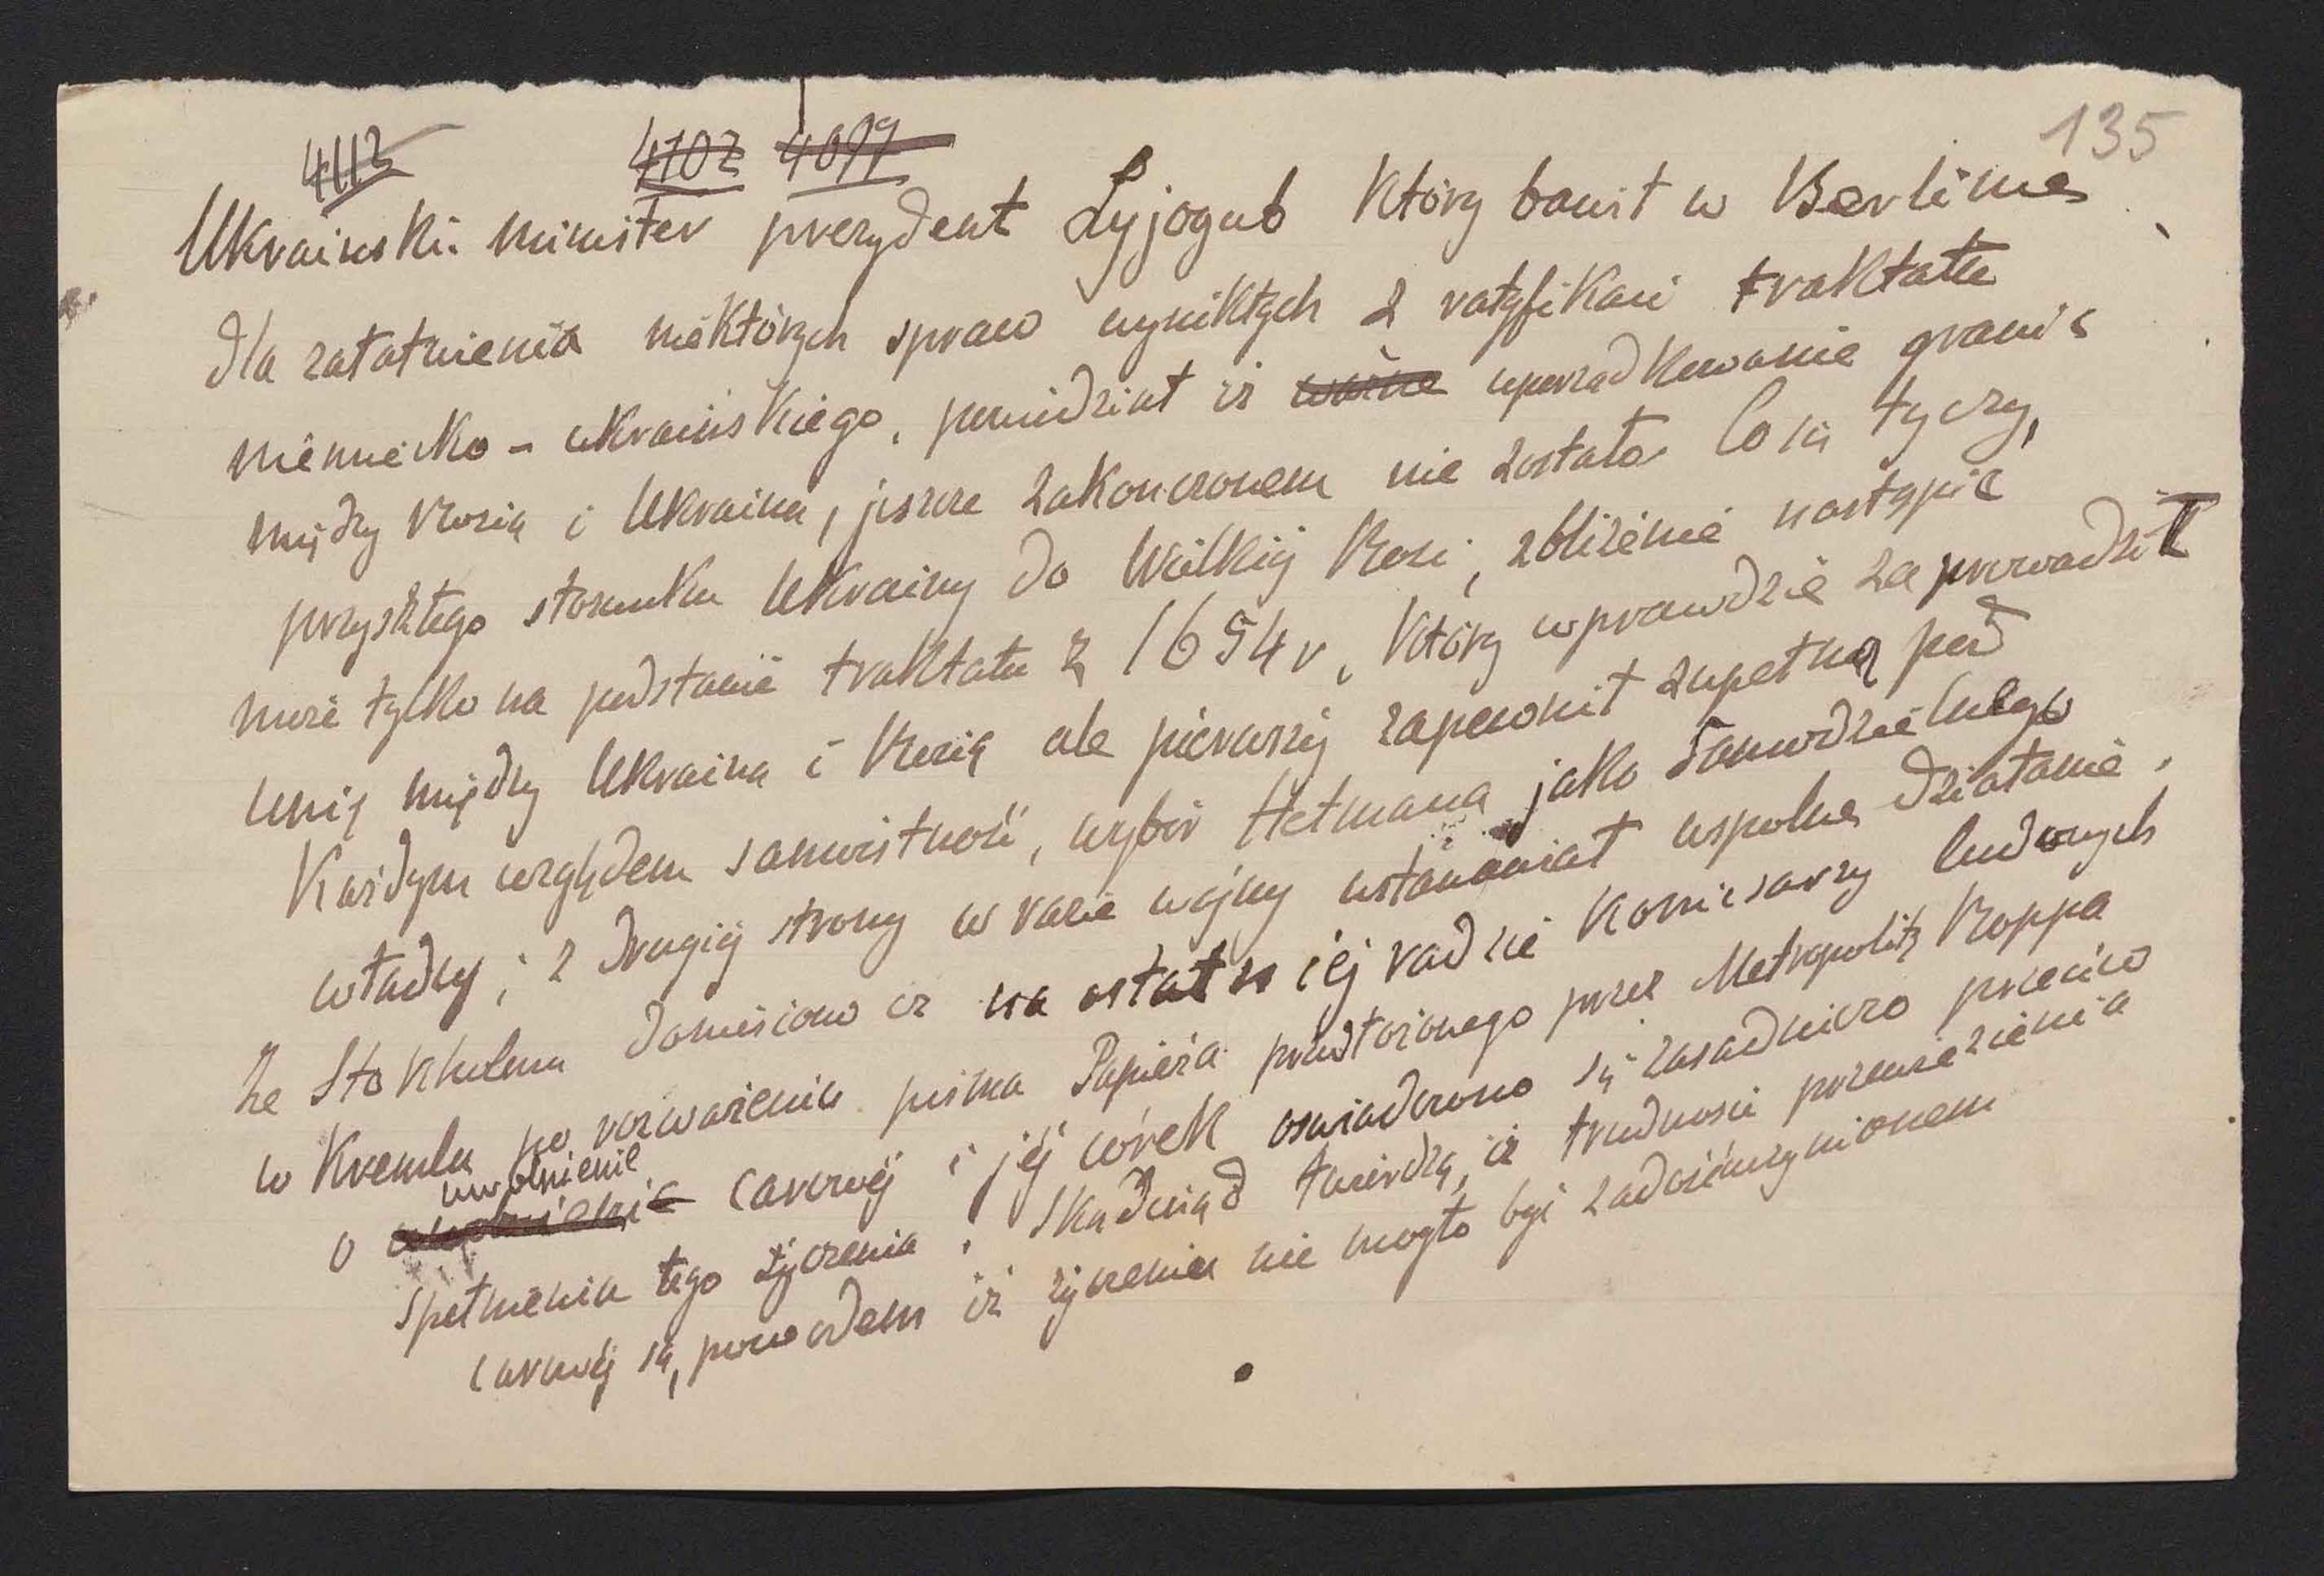 135
4113 4102 4099
Ukraiński minister prezydent Łyjogub który bawił w Berlinie
dla załatwienia niektórych spraw wynikłych z ratyfikacii traktatu
niemiecko - ukraińskiego, powiedział iż uporządkowanie granic
między Rosią i Ukrainą, jeszcze zakonczonem nie zostało Co się tyczy,
przyszłego stosunku Ukrainy do Wielkiej Rosii, zbliżenie nastąpić
może tylko na podstawie traktatu z 1654 r, który wprawdzie zaprowadził
Unię między Ukrainą i Rosią ale pierwszej zapewnił zupełną pod
Każdym względem samoistność, wybór Hetmana jako samodzielnego
władcy; z drugiej strony w razie wojny ustanawiał wspolne działanie,
Ze Stokholmu doniesiono iż na ostatniej radzie komisarzy ludowych
w Kremlu po rozważeniu pisma Papieża przedłożonego przez Metropolitę Roppa
uwolnienie
o carowej i jej córek oswiadczono się zasadniczo przeciw
spełnieniu tego życzenia, Skądinąd twierdzą, iż trudnosci przewiezienia
carowej są, powodem iż życzeniu nie mogło być zadośćuczynionem